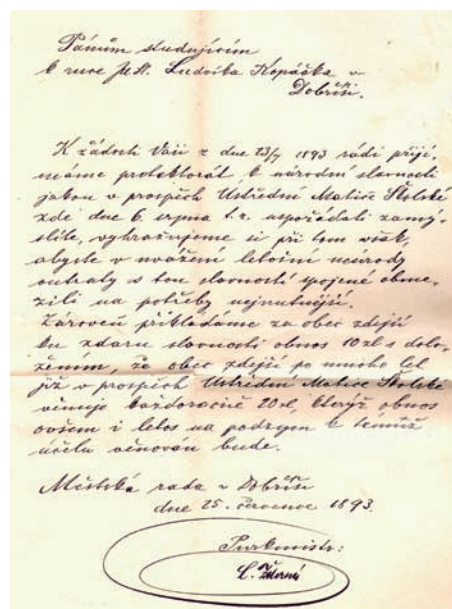 Pánům studujícím
k ruce p. St. Ludvíka Kopáčka v
Dobříši.
K žádosti Vaší z dne 23/7 1893 rádi přijí-
máme protektorát k národní slavnosti
jakou v prospěch Ústřední Matice Školské
zde dne 6. srpna t.r. uspořádati zamý-
šlíte, vyhražujeme si při tom však,
abyste v uvážení letošní neúrody
outraty s tou slavností spojené obme-
zili na potřeby nejnutnější.
Zároveň přikládáme za obec zdejší
ku zdaru slavnosti obnos 10 zl s dolo-
žením, že obec zdejší po mnoho let
již v prospěch Ústřední Matice Školské
věnuje každoročně 20 zl, kterýž obnos
ovšem i letos na podzim k témuž
účelu věnován bude.
Městská rada v Dobříši
dne 25. července 1893.
Purkmistr: